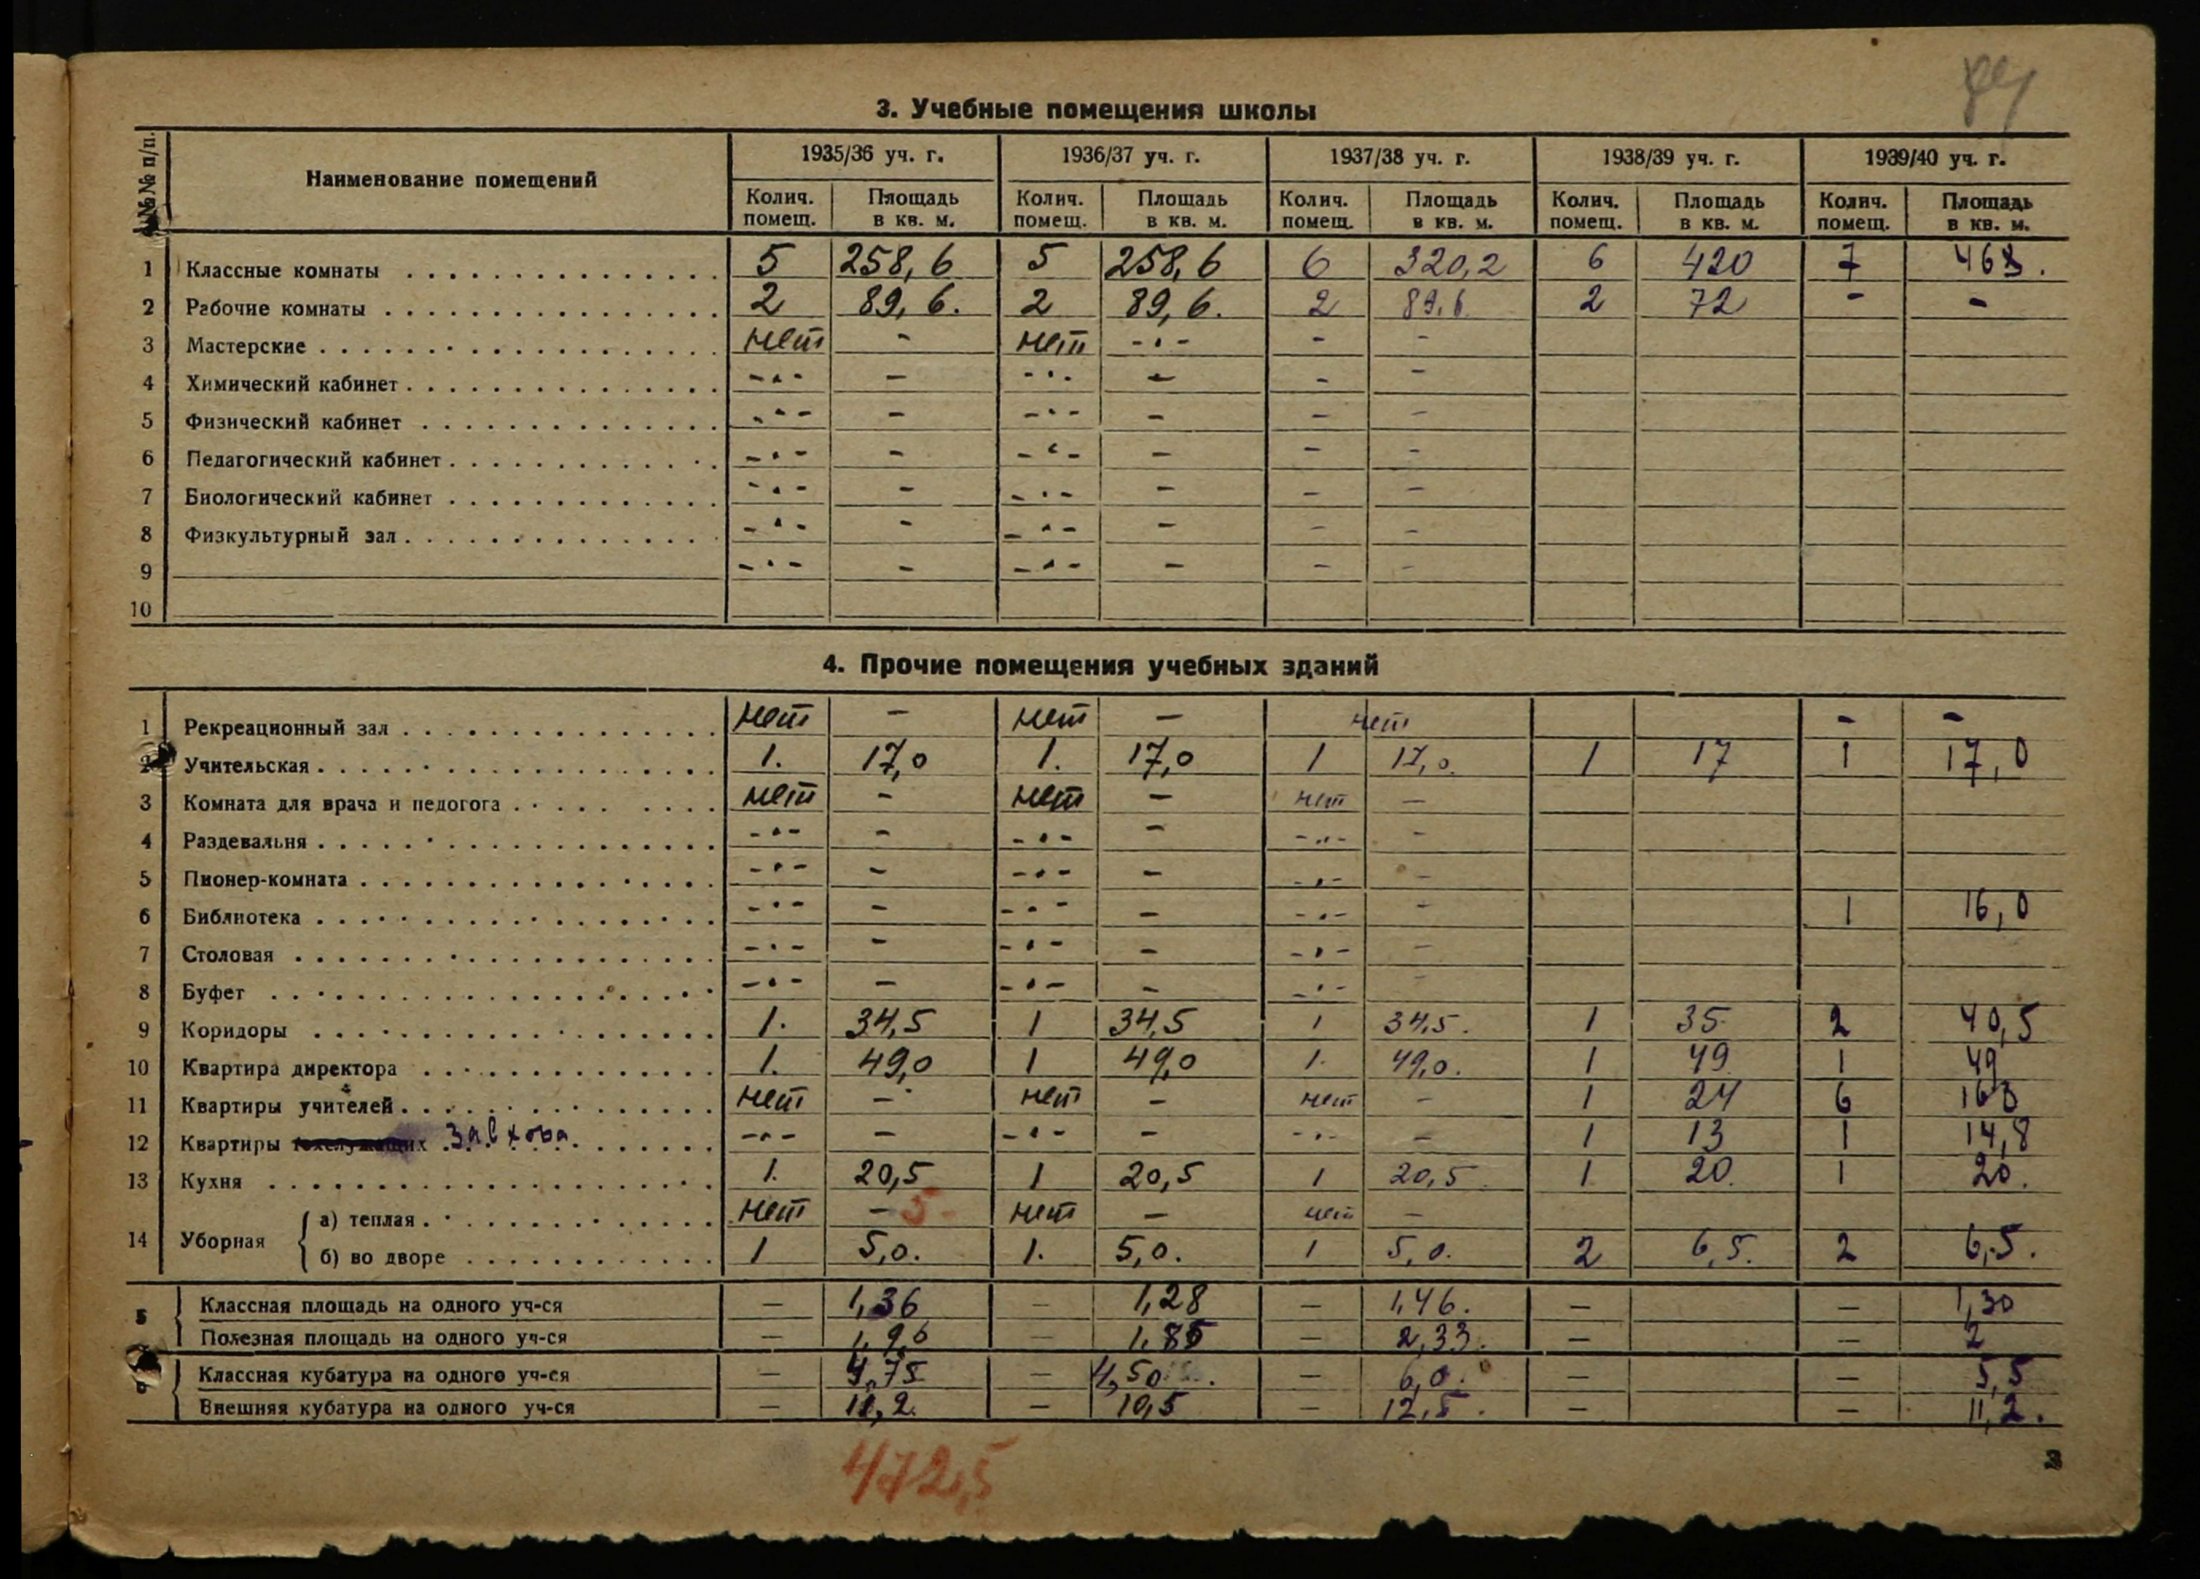 84
3. Учебные помещения школы
№№ п/п. Наименование помещений 1935/36 уч. г. 1936/37 уч. г. 1937/38 уч. г. 1938/39 уч. г. 1939/40 уч. г.
Колич. помещ. Площадь в кв. м. Колич. помещ. Площадь в кв. м. Колич. помещ. Площадь в кв. м. Колич. помещ. Площадь в кв. м. Колич. помещ. Площадь в кв. м.
1 Классные комнаты 5 258,6 5 258,6 6 320,2 6 420 7 468.
2 Рабочие комнаты 2 89,6. 2 89,6. 2 89,6 2 72 - -
3 Мастерские нет - нет -·- - -
4 Химический кабинет -·- - -·- - - -
5 Физический кабинет -·- - -·- - - -
6 Педагогический кабинет -·- - -·- - - -
7 Биологический кабинет -·- - -·- - - -
8 Физкультурный зал -·- - -·- - - -
9 -·- - -·- - - -
10
4. Прочие помещения учебных зданий
1 Рекреационный зал нет - нет - нет - -
2 Учительская 1. 17,0 1. 17,0 1 17,0. 1 17 1 17,0
3 Комната для врача и педогога нет - нет - нет -
4 Раздевальня -·- - -·- - -·- -
5 Пионер-комната -·- - -·- - -·- -
6 Библиотека -·- - -·- - -·- - 1 16,0
7 Столовая -·- - -·- - -·- -
8 Буфет -·- - -·- - -·- -
9 Коридоры 1. 34,5 1 34,5 1 34,5. 1 35 2 40,5
10 Квартира директора 1. 49,0 1 49,0 1. 49,0. 1 49 1 49
11 Квартиры учителей нет - нет - нет - 1 24 6 163
12 Квартиры завхоза. -·- - -·- - -·- - 1 13 1 14,8
13 Кухня 1. 20,5 1 20,5 1 20,5. 1 20. 1 20.
14 Уборная а) теплая нет - 5- нет - нет -
б) во дворе 1 5,0. 1. 5,0. 1 5,0. 2 6,5. 2 6,5.
5 Классная площадь на одного уч-ся - 1,36 - 1,28 - 1,46. - - 1,30
Полезная площадь на одного уч-ся - 1,96 - 1,85 - 2,33. - - 2
6 Классная кубатура на одного уч-ся - 4,75 - 4,50 - 6,0. - - 5,5
Внешняя кубатура на одного уч-ся - 11,2. - 10,5 - 12,5. - - 11,2.
472,5
3